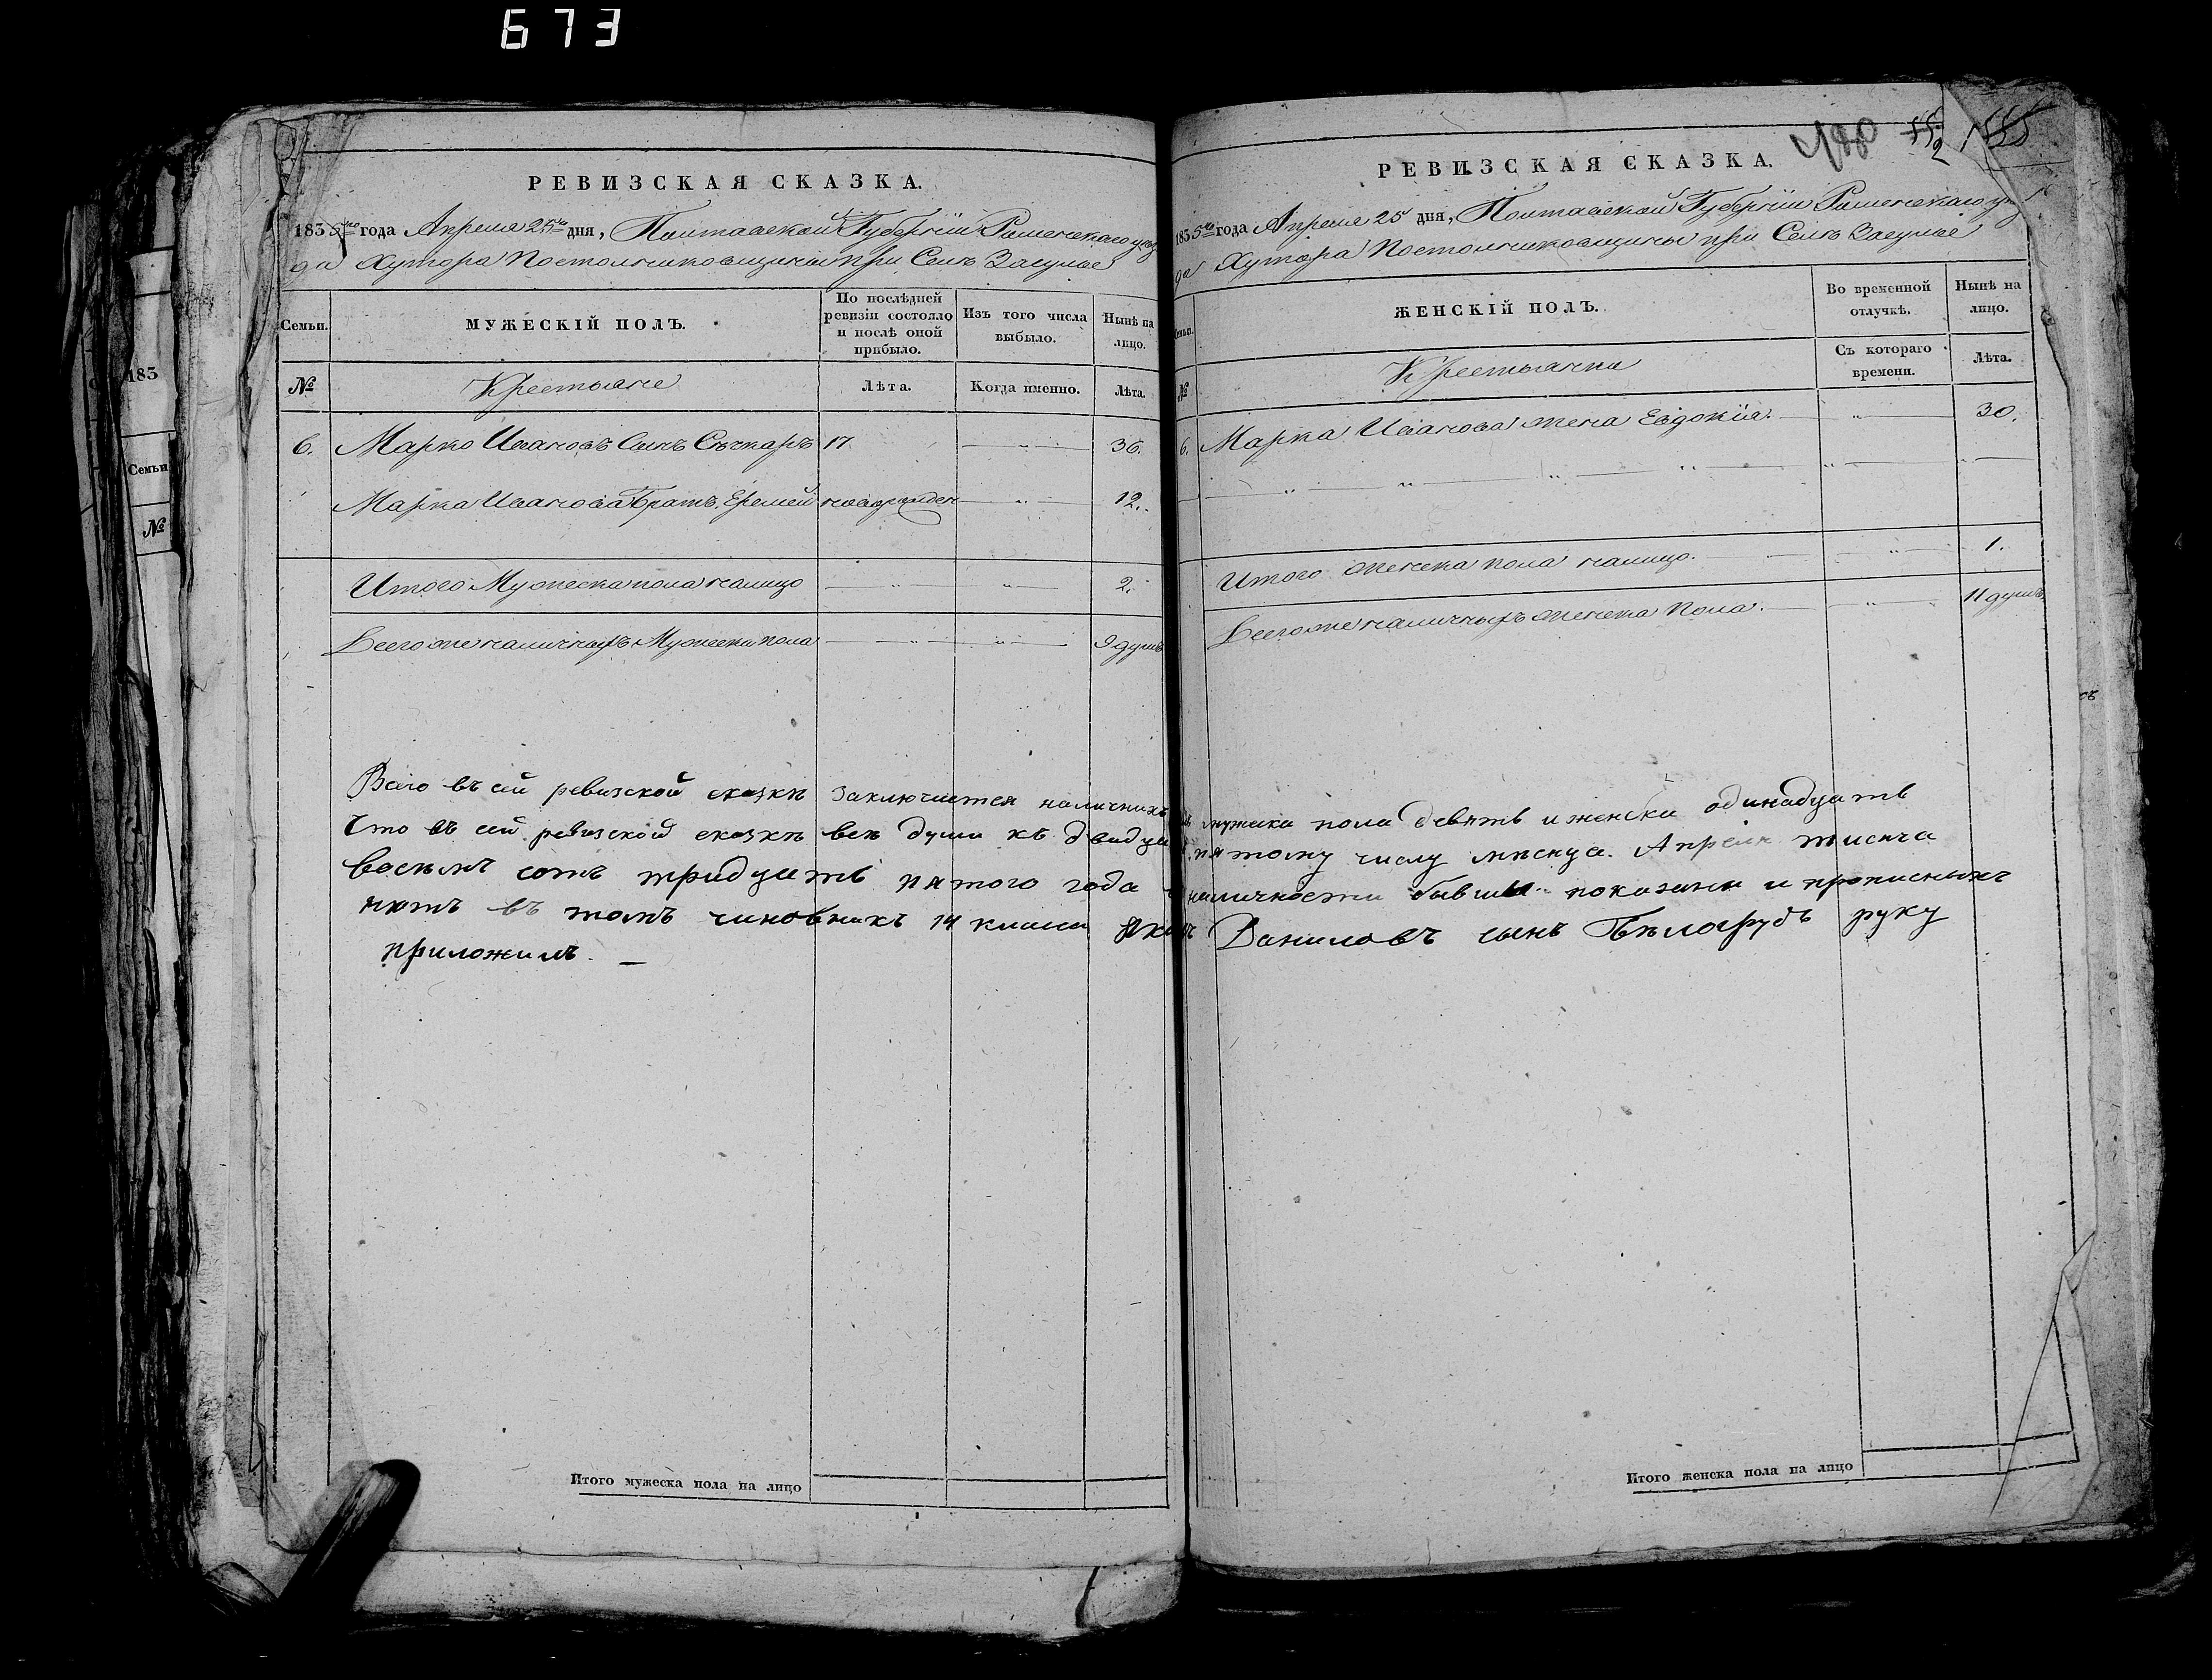 673
183
Семьи
№
РЕВИЗСКАЯ СКАЗКА.
1835го года Апреля 25го дня, Полтавской Губернiи Роменскаго уез
да Хутора Постольниковщины при Селѣ Засулье
Семьи.
МУЖЕСКIЙ ПОЛЪ.
По послѣдней
ревизiи состояло
и послѣ оной
прибыло.
Изъ того числа
выбыло.
Нынѣ на
лицо.
№
Крестьяне
Лѣта.
Когда именно.
Лѣта.
6. Марко Ивановъ Сынъ Сѣчкаръ 17 36.
Марка Иванова Братъ Еремей новорожден 12.
Итого Мужеска пола налицо 2.
Всего же наличныхъ Мужеска пола 9 душъ
Итого мужеска пола на лицо
480 552 1555
РЕВИЗСКАЯ СКАЗКА.
1835го года Апреля 25 дня, Полтавской Губернiи Роменскаго уез
да Хутора Постольниковщины при Селѣ Засулье
ЖЕНСКIЙ ПОЛЪ.
Во временной
отлучкѣ.
Нынѣ на
лицо.
№
Крестьянки
Съ котораго
времени.
Лѣта.
6. Марка Иванова жена Евдокiя 30.
Итого женска пола налицо 1.
Всего же наличныхъ женска пола. 11 душъ
Всего въ сей ревизской сказкѣ заключается наличныхъ мужеска пола девять и женска одинадцать
Что въ сей ревизской сказкѣ всѣ души къ двадцать пятому числу мѣсяца Апреля тисяча
восемъ сотъ тридцать пятого года в наличности бывшы показаны и прописныхъ
нѣтъ въ томъ чиновникъ 14 класса Яковъ Даниловъ сынъ Бѣлогрудъ руку
приложилъ.
Итого женска пола на лицо